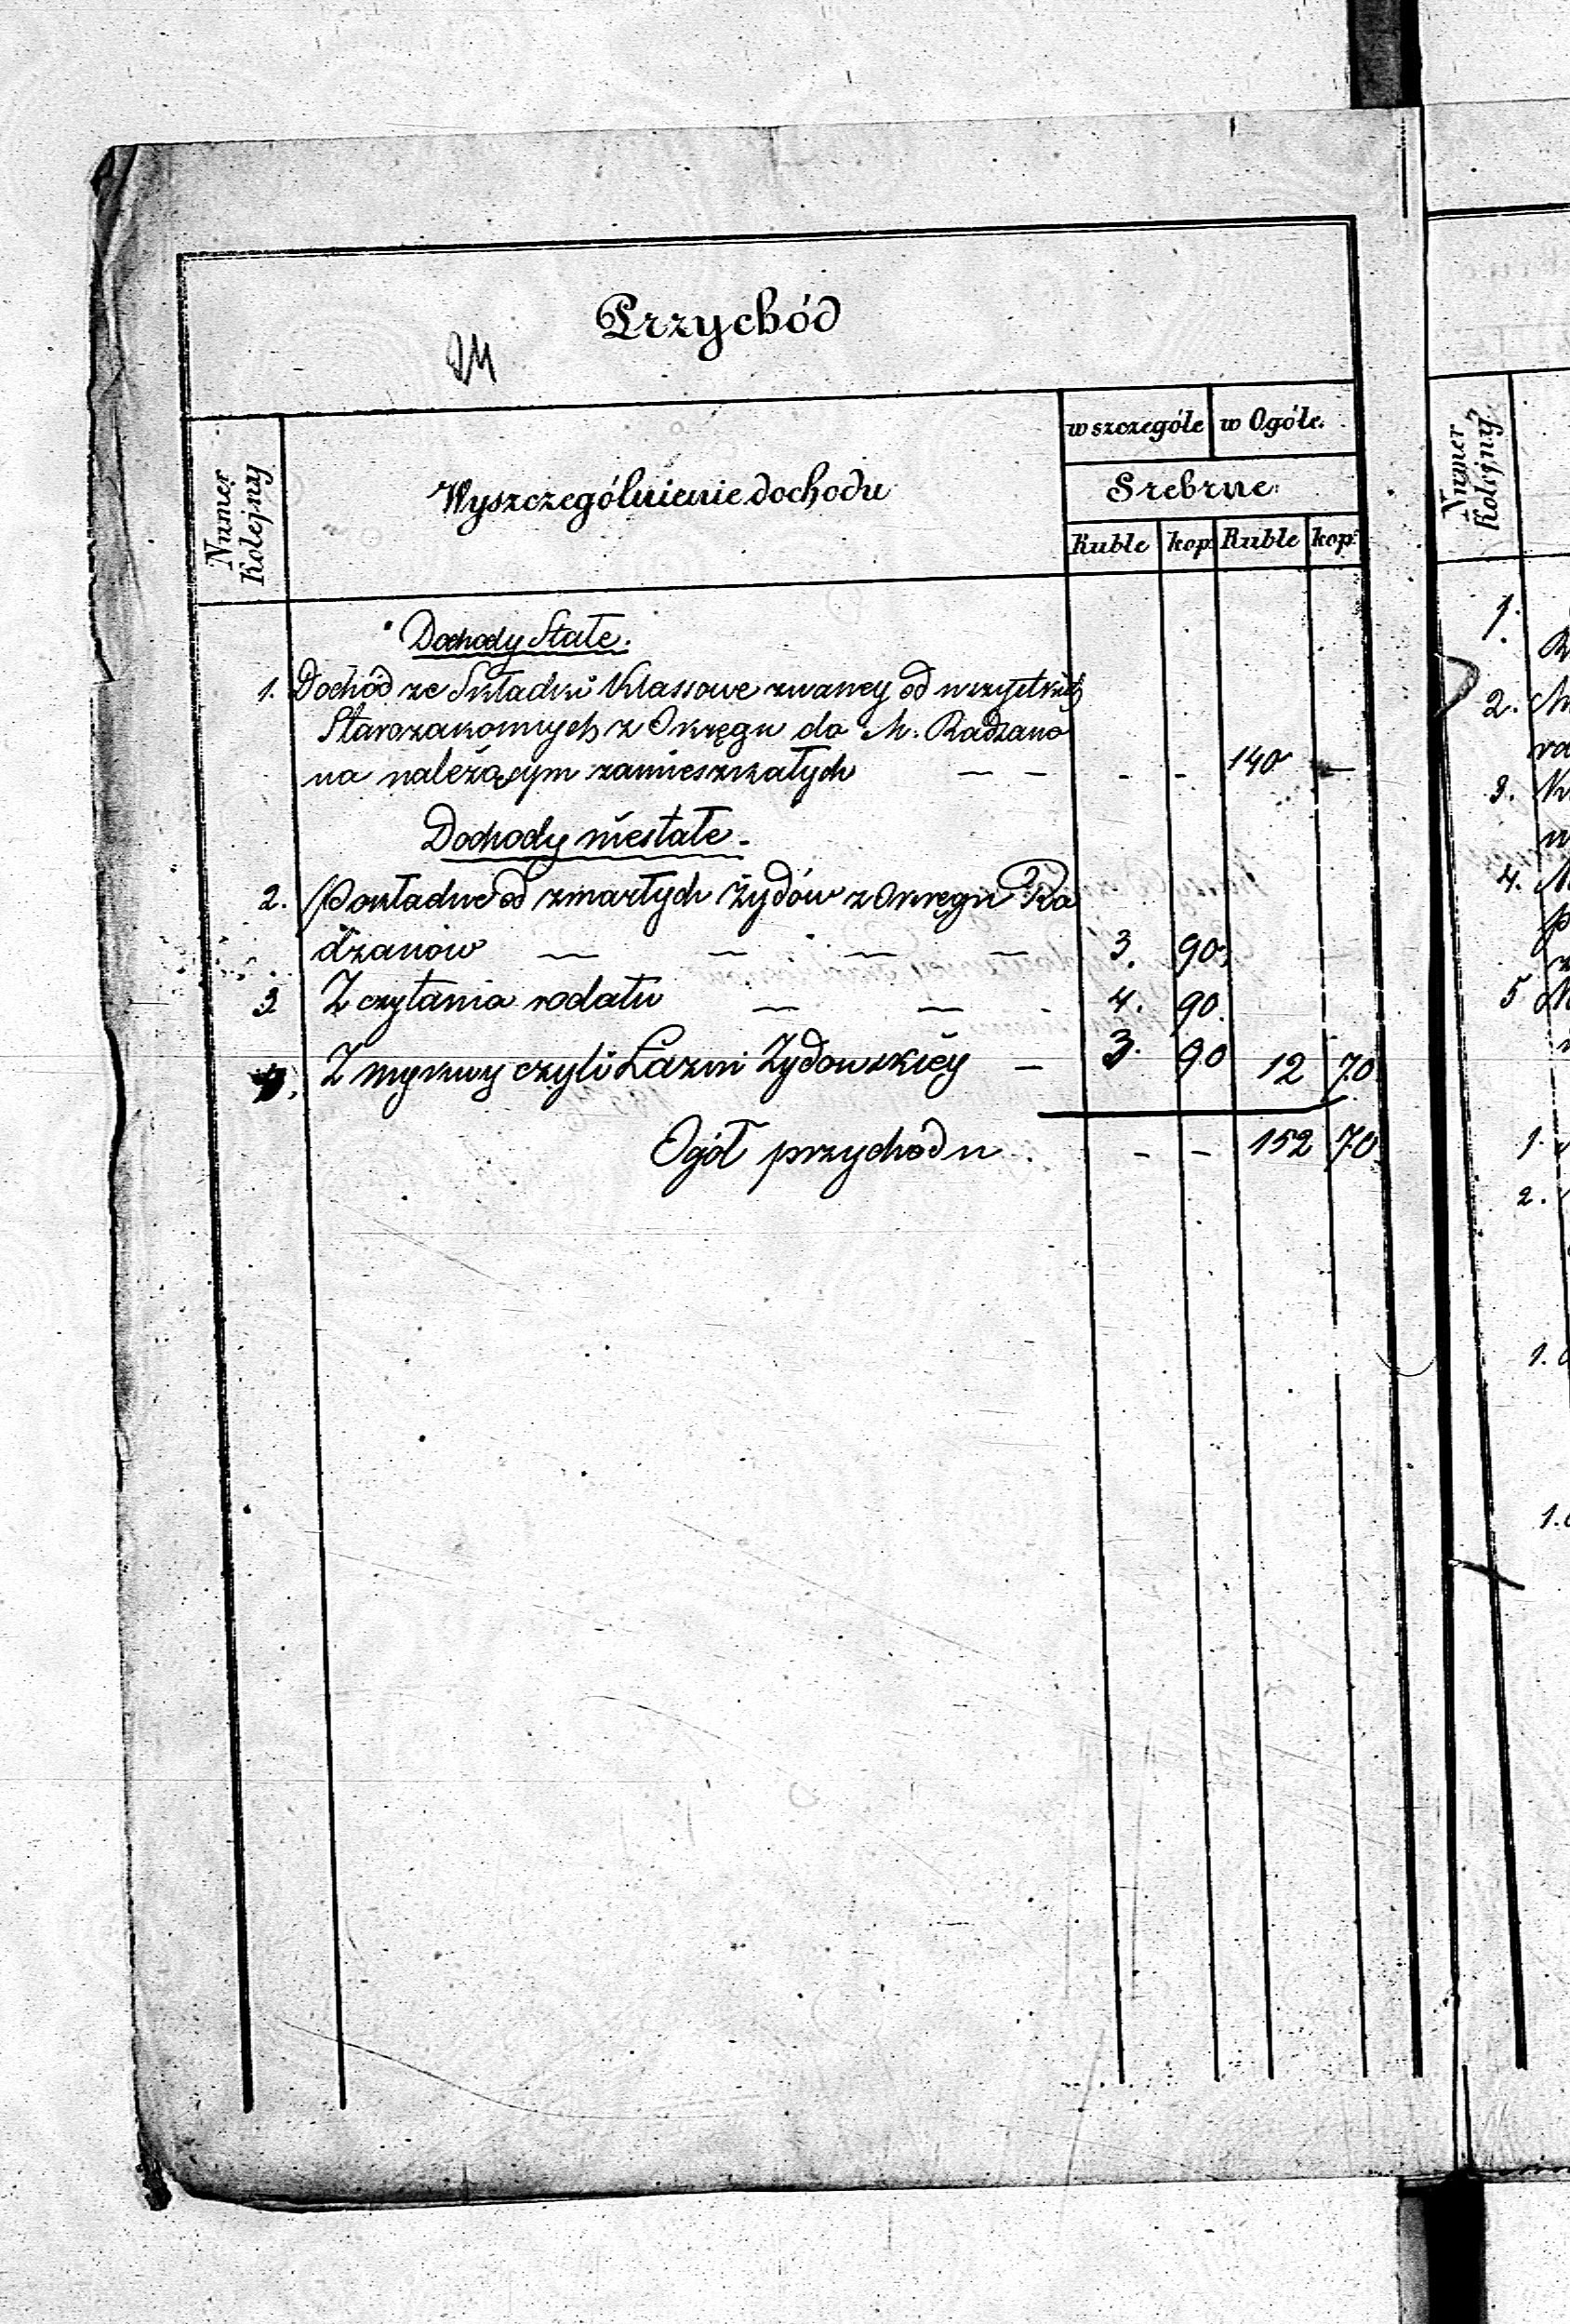 Przychód
Numer Kolejny
Wyszczególnienie dochodu
w szczególe
w Ogóle.
Srebrne
Ruble
kop.
Ruble
kop.
Dochody Stałe.
1. Dochód ze Składki Klassowe zwaney od wszystkich
Starozakonnych z Okręgu do M. Radzano
na należącym zamieszkałych — — - - 140 —
Dochody niestałe.
2. Pokładne od zmarłych Żydów z Okręgu Ra
dzanow — — — — 3. 90.
3 Z czytania rodału — — - 4. 90.
4. Z mykwy czyli Łazni Żydowskiéy — 3. 90 12 70.
Ogół przychodu . - - 152 70.
Numer Kolejny
1.
2.
3.
4.
5
1.
2.
1.
1.